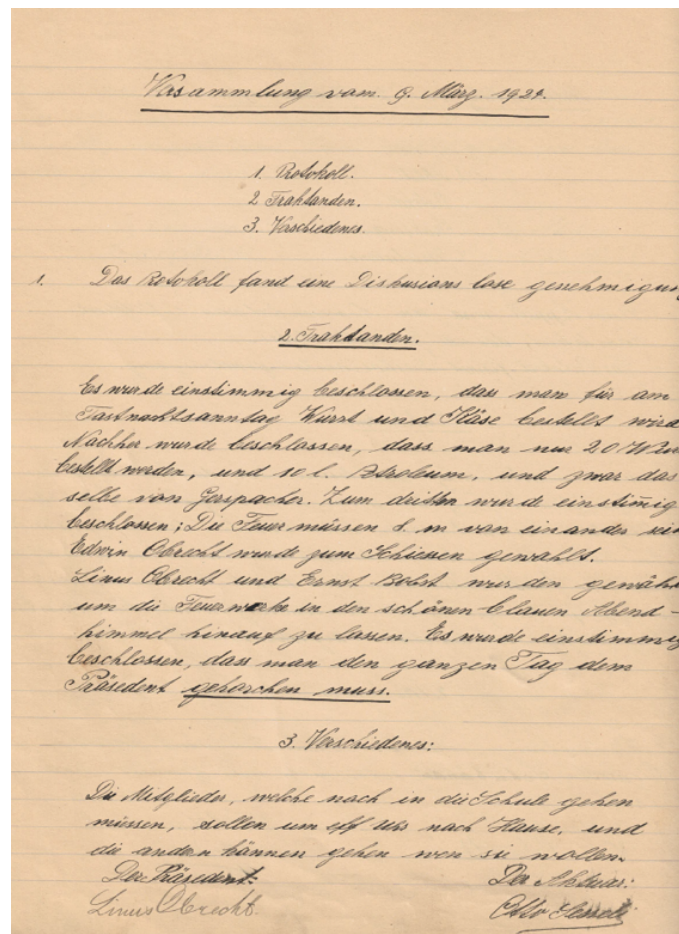 Versammlung vom. 9. März. 1924.
1. Protokoll.
2 Traktanden.
3. Verschiedenes.
1. Das Protokoll fand eine Diskusions lose genehmigung
2. Traktanden.
Es wurde einstimmig beschlossen, dass man für am
Fastnachtsanntag Wurst und Käse bestellt wird
Nachher wurde beschlossen, dass man nur 20 Wur
bestellt werden, und 10 l. Petroleum, und zwar das
selbe von Gerspacher. Zum dritten wurde einstim̄ig
beschlossen; Die Feuer müssen m von einander sein
Edwin Obrecht wurde zum Schiessen gewahlt.
Linus Obrecht und Ernst Bobst wurden gewähl
um die Feuerwerke in den schönen blauen Abend-
himmel hinauf zu lassen. Es wurde einstimmig
beschlossen, dass man den ganzen Tag dem
Präsedent gehorchen muss.
3. Verschiedenes:
Die Mitglieder, welche noch in die Schule gehen
müssen, sollen um elf Uhr nach Hause, und
die andern können gehen wen sie wollen.
Der Präsedent: Der Aktuar:
Linus Obrecht. Otto